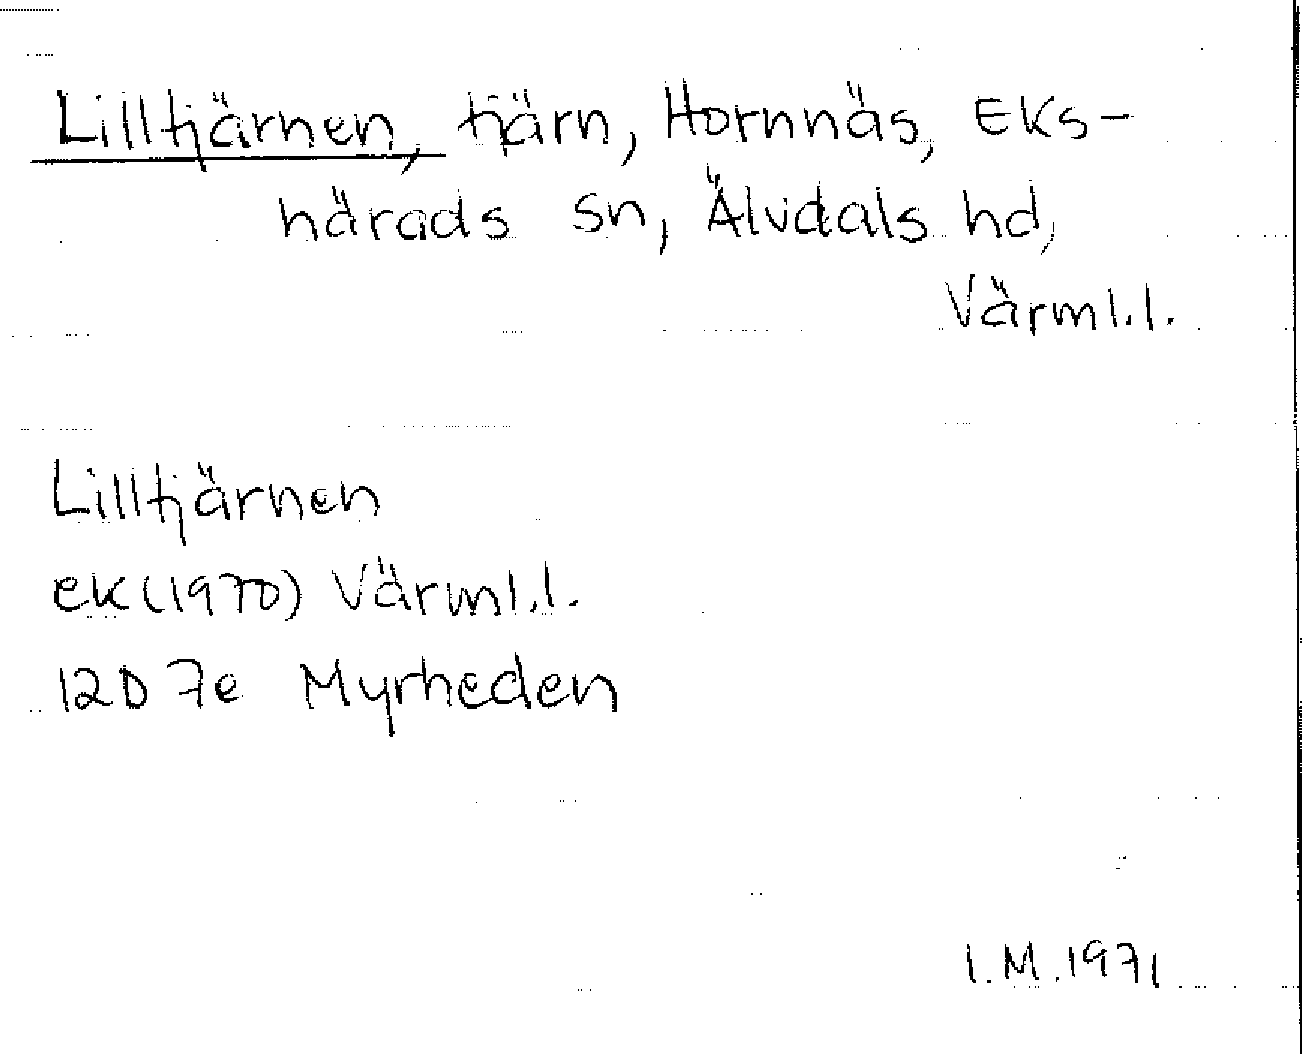 Lilltjärnen, tjärn, Hornnäs, Eks-
härads sn, Älvdals hd,
Värml.l.
Lilltjärnen
ek (1970) Värml.l.
12D 7e Myrheden
I.M.1971